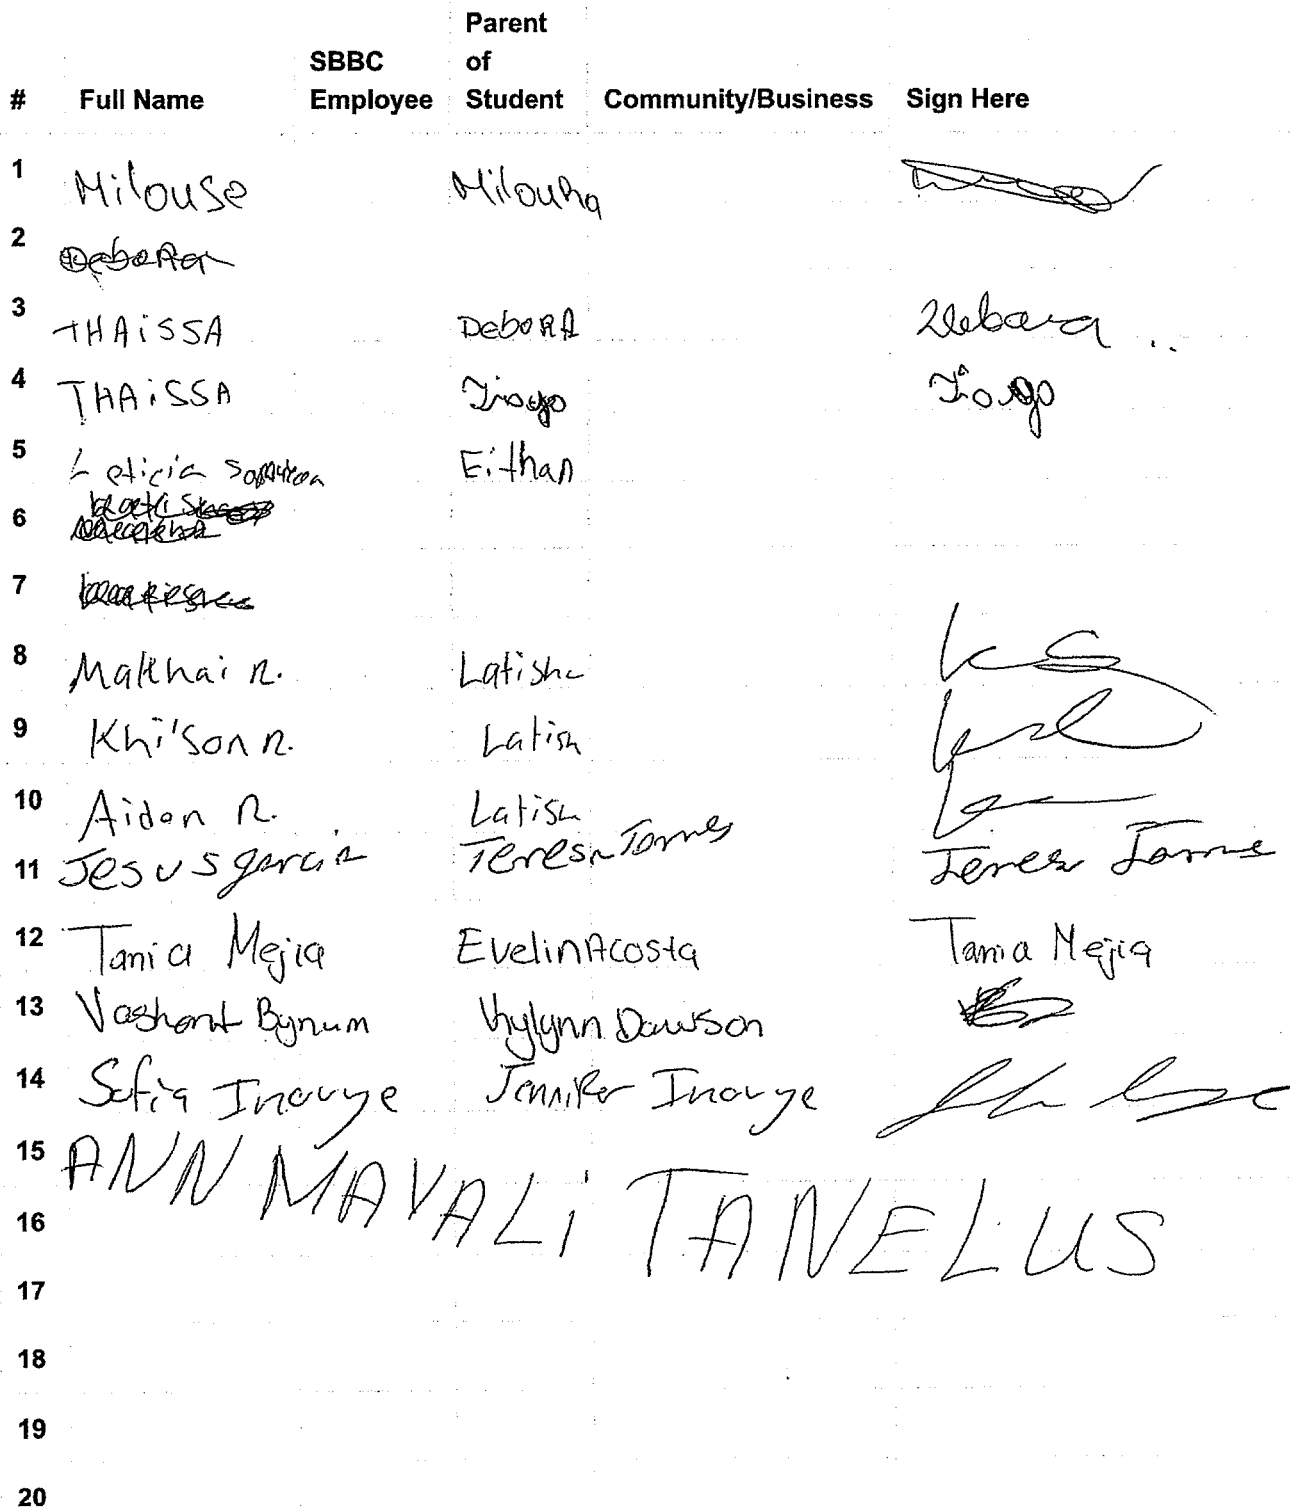 Parent
SBBC of
# Full Name Employee Student Community/Business Sign Here
1 Milouse Milouna
2 Debora
3 THAiSSA DeboRA Debora ..
4 THAiSSA Tiago Tiago
5 Leticia Eithan
6
7
8 Malkhai R. Latisha
9 Khi'son R. Latish
10 Aidan R. Latish
11 Jesus garcia Teresa Torres Teresa Torres
12 Tania Mejia Evelin Acosta Tania Mejia
13 Vashant Bynum Khylynn Dawson
14 Sofia Inouye Jennifer Inouye
15 ANN MAVALi TANELUS
16
17
18
19
20